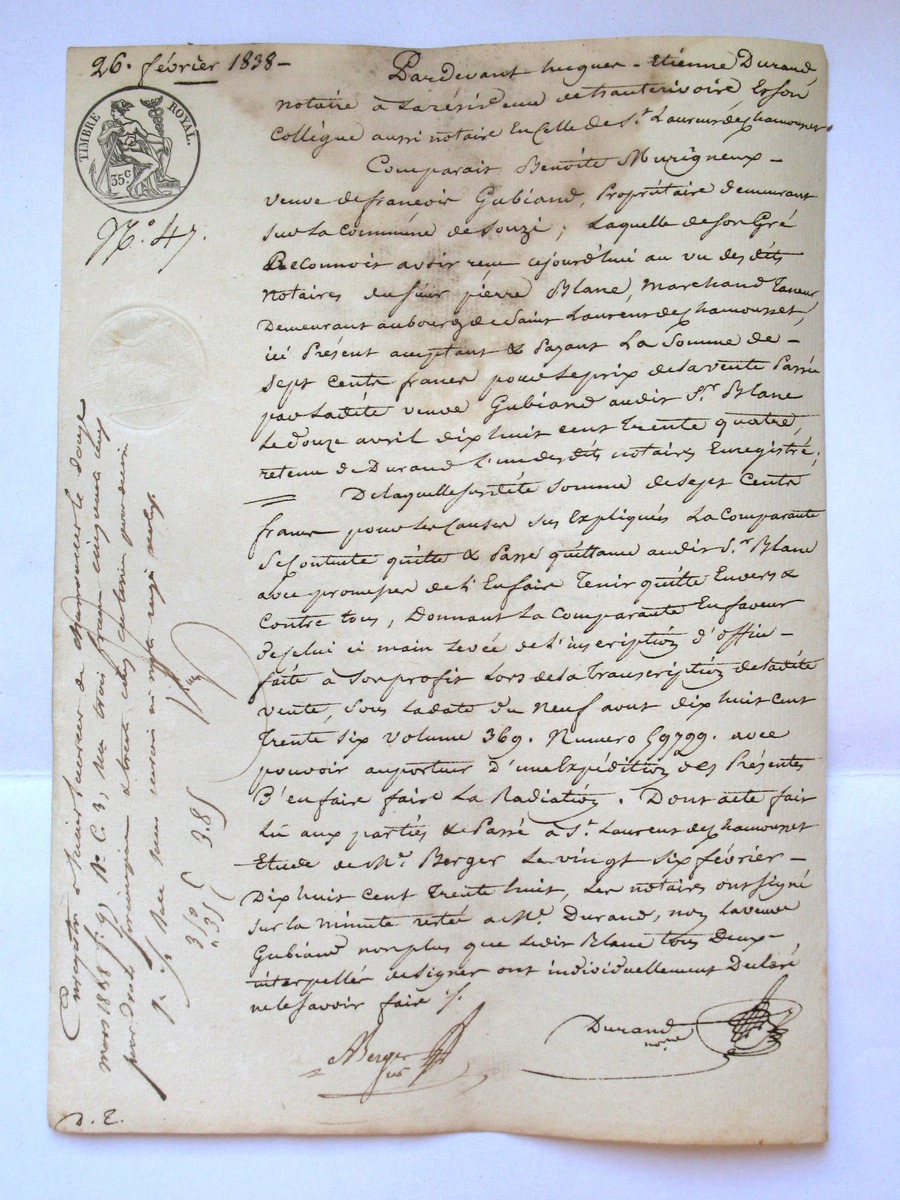 26. février 1838 -
TIMBRE ROYAL.
35 c.
N.o 47.
Pardevant hugues - Etienne Durand,
notaire à la résidence de hauterivoire Et son
Collègue aussi notaire En Celle de S.t Laurent de chamousset.
Comparait Benoite Murigneux -
veuve de francois Gubiand, Propriétaire demeurant
sur la Commune de Souzi ; Laquelle de son Gré
Reconnoit avoir reçu cejourd'hui au vu des dits
notaires du sieur pierre Blanc, Marchand Taneur
Demeurant au bourg de Saint Laurent de chamousset,
ici Présent acceptant & Payant La Somme de -
Sept Cents francs pour le prix de la vente Passée
par la dite veuve Gubiand audit S.r Blanc
Le douze avril dix huit cent trente quatre,
retenue de Durand L'un des dits notaires Enregistré ;
= De laquelle susdite Somme de sept Cents
francs pour les Causes sus Expliquées La Comparante
Se Contente quitte & Passe quittance audit S.r Blanc
avec promesses de l'En faire Tenir quitte Envers &
Contre tous, Donnant La Comparante En faveur
de celui ci main Levée de l'inscription d'office -
faite à son profit Lors de la Transcription de la dite
vente, sous la date du Neuf aout dix huit cent
Trente six volume 369. Numero 59799. avec
pouvoir au porteur d'une Expédition des Présentes
D'en faire faire La Radiation. Dont acte fait
Lu aux parties & Passé à S.t Laurent de chamousset
Etude de M.e Berger Le vingt six février -
Dix huit Cent Trente huit, Les notaires ont signé
sur la minute restée à M.e Durand, non la veuve
Gubiand non plus que ledit Blanc tous Deux -
interpellés de signer ont individuellement Déclaré
ne le savoir faire ./.
Durand
no.re
Berger
Enregistré à Saint Laurent de chamousset le douze
mars 1838 f.o 91 R.o C. 3, reçu trois francs cinquante cent
pour droit principal & trente cinq centimes pour decime
D. T.